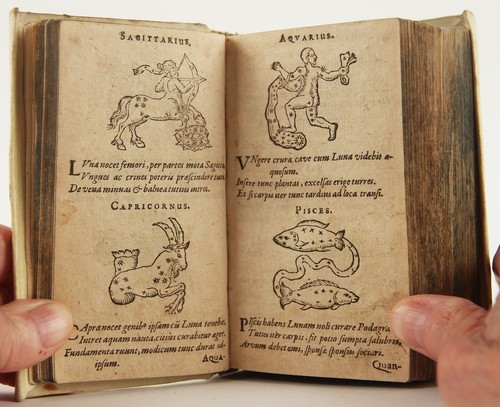 SAGITTARIUS.
LVna nocet femori, per partes mota Sagitta
Vngues ac crines poteris prescindere tuta
De vena minuas & balnea tutius intres.
CAPRICORNUS.
CApra nocet genib' ipsam cũ Luna tenebit,
Intret aquam nauta, citius curabitur æger,
Fundamenta ruunt, modicum tunc durat id-
ipsum.
AQUA-
AQVARIUS.
VNgere crura cave cum Luna videbis a-
quosum.
Insere tunc plantas, excelsas erige turres.
Et si carpis iter tunc tardius ad loca transi.
PISCES.
PIscis habens Lunam noli curare Podagrã
Tutũ iter carpis, sit potio sumpta salubris,
Arvum debet emi, sponsæ sponsus sociari.
Quan-